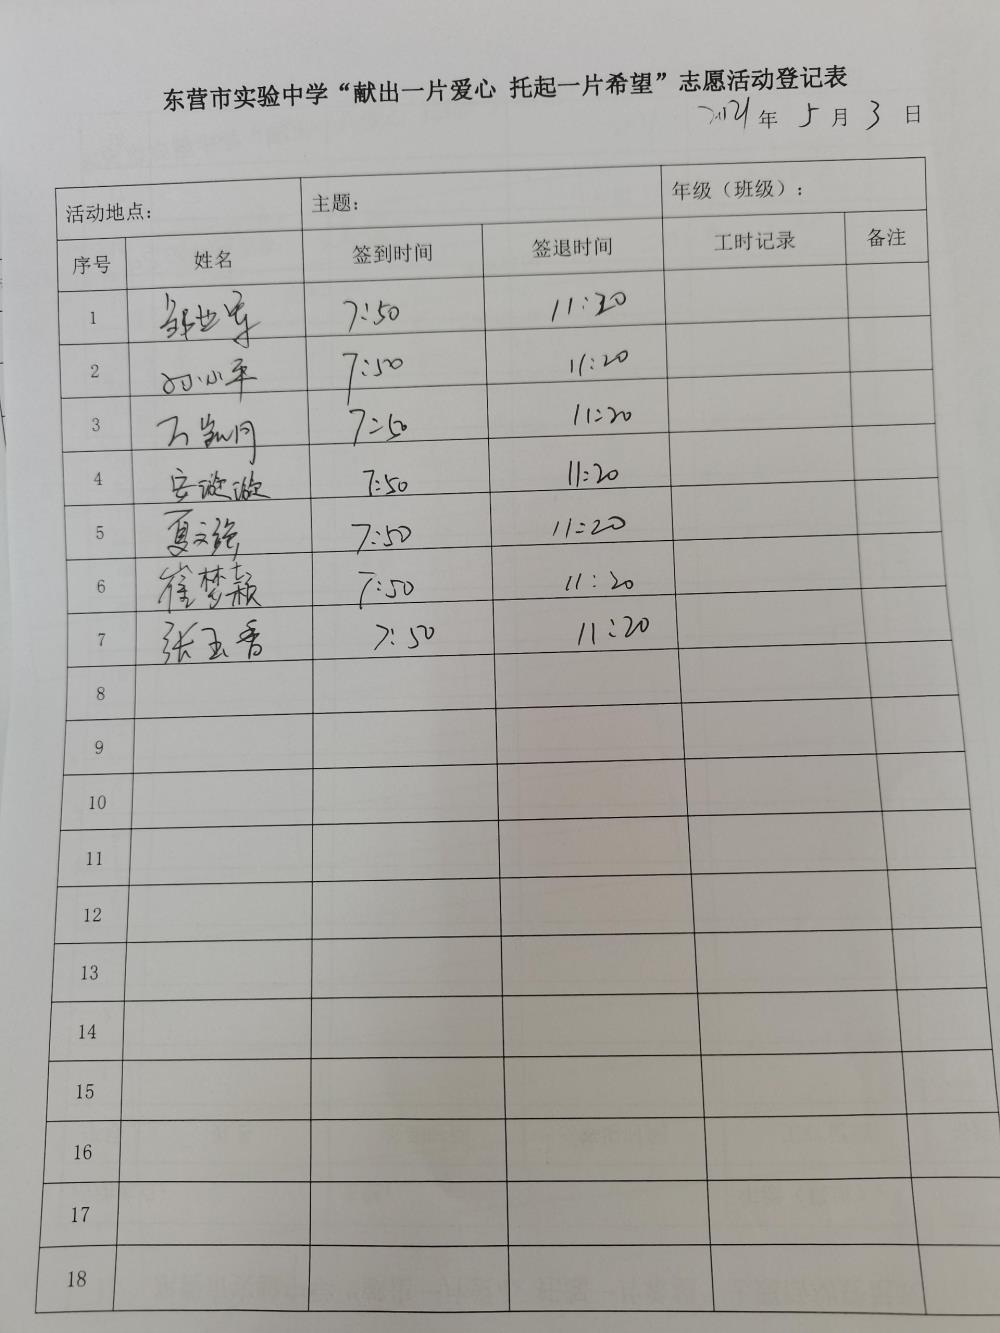 东营市实验中学“献出一片爱心 托起一片希望”志愿活动登记表
2021年 5月 3日
活动地点： 主题： 年级（班级）：
序号 姓名 签到时间 签退时间 工时记录 备注
1 7:50 11:20
2 7:50 11:20
3 7:50 11:20
4 安璇璇 7:50 11:20
5 夏文强 7:50 11:20
6 崔梦颖 7:50 11:20
7 张玉香 7:50 11:20
8
9
10
11
12
13
14
15
16
17
18